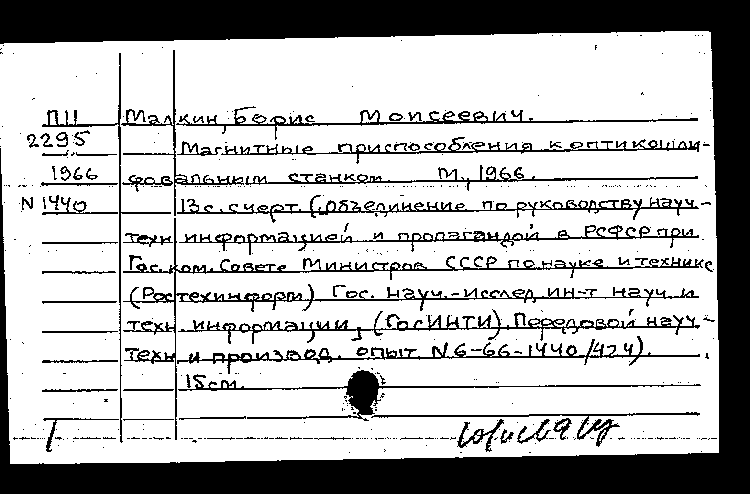 П11 Малкин, Борис Моисеевич.
2295 Магнитные приспособления к оптикошли-
1966 фовальным станкам. М., 1966.
N 1440 13 с. с черт. (Объединение по руководству науч.-
техн информацией и пропагандой в РСФСР при
Гос. ком. Совета Министров СССР по науке и технике
(Ростехинформ). Гос. науч.-исслед. ин-т науч. и
техн. информации, (ГосИНТИ). Передовой науч.-
техн и производ. опыт. N 6-66-1440/424).
15 см.